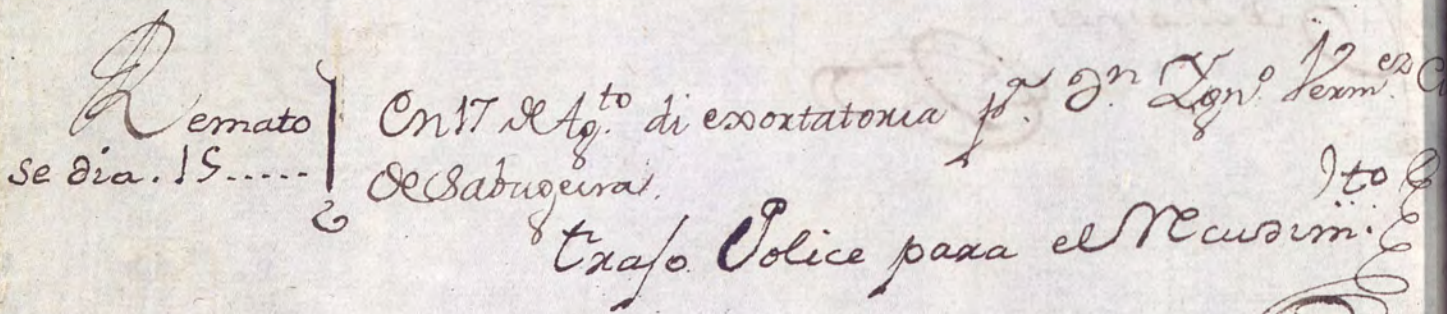 Remato
se dia. 15.....
En 17 de Ag.to di exortatoria p.a Dn Ygn.o Verm.ez
de Sabugeira.
traso Police para el Recudim.to